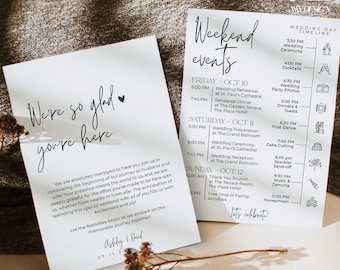 We're so glad
you're here
We are absolutely overjoyed to have you join us in
celebrating the beginning of our journey as husband and
wife. Your presence means the world to us, and we are
deeply grateful for the effort you've made to be here with
us, whether from nearby or from afar. The anticipation of
spending this special weekend with all of you fills us with
excitement and joy!
Let the festivities begin as we embark on this
memorable journey together!
Ashley & David
Weekend
events
FRIDAY - OCT 10
6:00 PM
Wedding Rehearsal
at St. Paul's Cathedral
7:45 PM
Rehearsal Dinner
at the Garden Terrace,
The Plaza Hotel
SATURDAY - OCT 11
Wedding Preparation
at The Grand Ballroom
Wedding Ceremony
at St. Paul's Cathedral
Wedding Reception
at The Grand Ballroom
SUNDAY - OCT 12
Thank You Brunch
at The Terrace Room,
The Plaza Hotel
Free Time or Family
Activities
Let's celebrate!
WEDDING DAY
TIMELINE
3:30 PM
Wedding
Ceremony
4:00 PM
Cocktails
4:30 PM
Wedding
Party Photos
5:00 PM
Dinner &
Toasts
6:30 PM
First Dance
Party
9:00 PM
Sparkler
Send-off
Music &
Dancing
11:00 PM
Cake Cutting